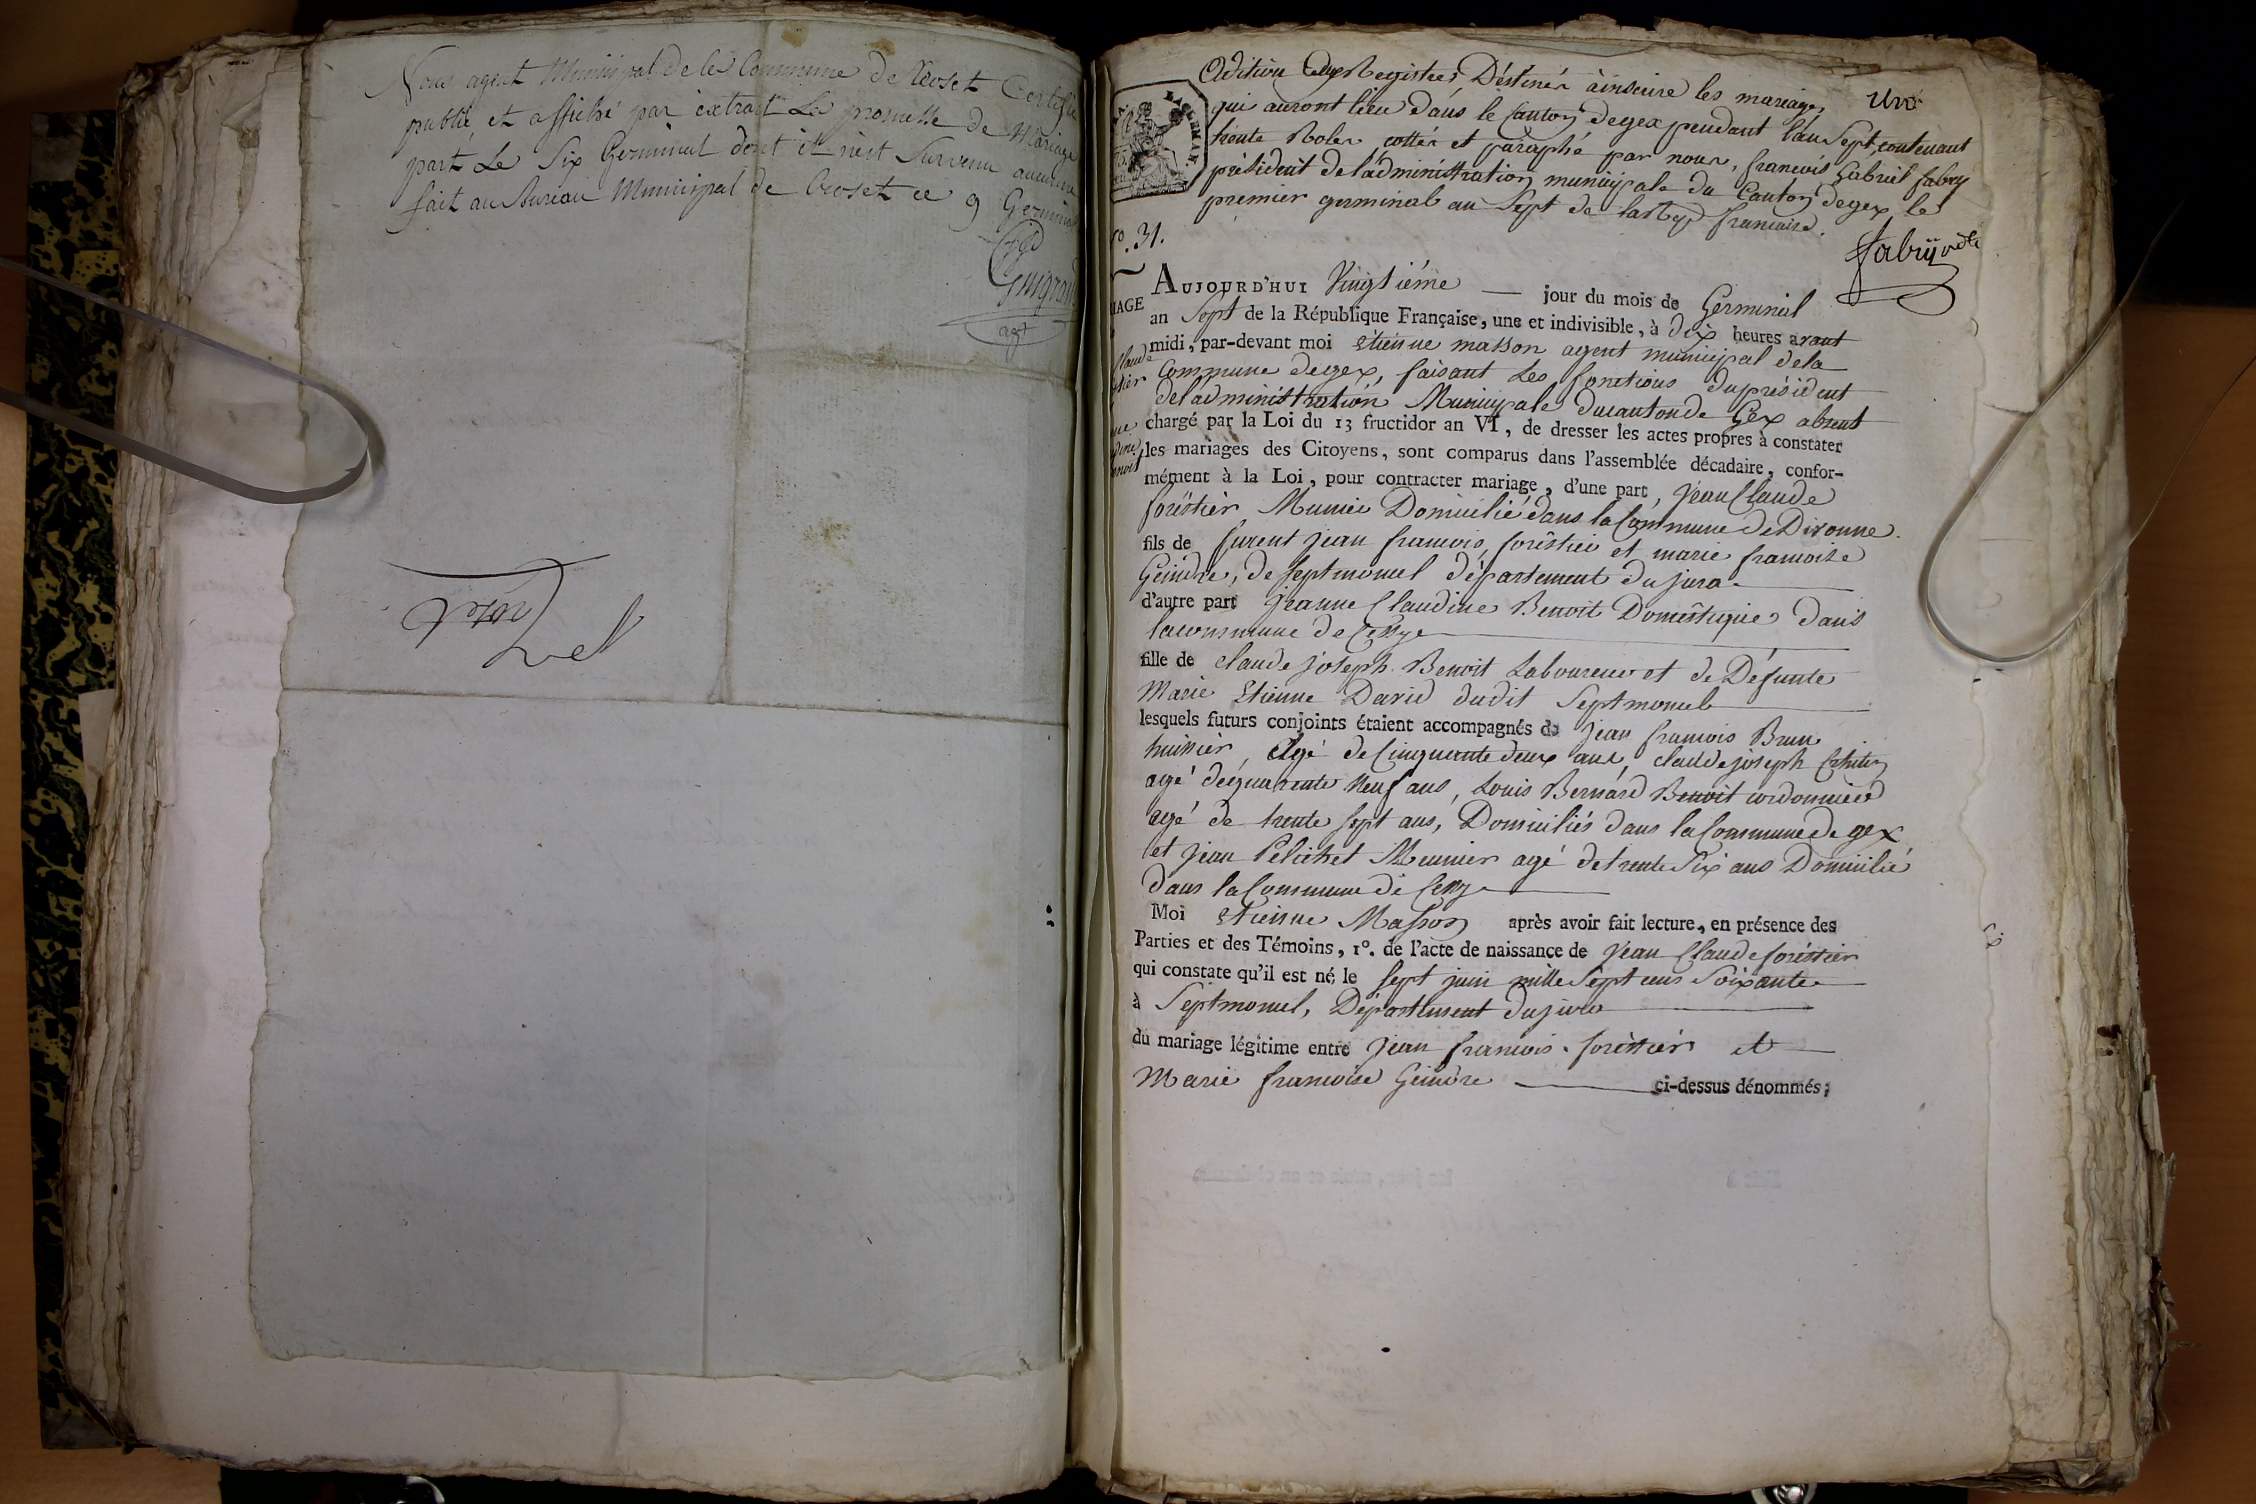 Nous agent Municipal de la Commune de Croset Certifie
publié et affiché par extrait La promesse de Mariage
part Le Six Germinal dont il n'est Survenu aucune
fait au Bureau Municipal de Croset ce 9 Germinal
agt
Adition aux Registres Déstinés àinscrire les mariages
Une
qui auront lieu dans le Canton degex pendant l'an Sept, contenant
trente Roles cottés et paraphé par nous, francois Gabriel fabry
président de l'administration municipale du Canton degex, le
premier germinal an Sept de la Rep francaise.
fabry
31.
AUJOURD'HUI Vingtiéme jour du mois de Germinal
IAGE
an Sept de la République Française, une et indivisible, à dix heures avant
midi, par-devant moi Etienne masson agent municipal dela
Commune degex, faisant Les fonctions duprésident
del'administration Municipale ducanton de Gex absent
chargé par la Loi du 13 fructidor an VI, de dresser les actes propres à constater
les mariages des Citoyens, sont comparus dans l'assemblée décadaire, confor-
mément à la Loi, pour contracter mariage, d'une part, Jean Claude
foréstier Munier Domicilié dans la Commune de Divonne
fils de furent Jean francois foréstier et marie francoise
Geindre, de septmoncel département du jura
d'autre part Jeanne Claudine Benoit Doméstique dans
lacommune de Cessy
fille de claude joseph Benoit Laboureur et de Défunte
Marie Etienne David dudit Septmoncel
lesquels futurs conjoints étaient accompagnés de Jean francois Brun
huissier, Agé de Cinquante deux ans, claude joseph
agé de quarente Neuf ans, Louis Bernard Benoit cordonnier
agé de trente sept ans, Domiciliés dans la Commune de gex
et Jean Pelichet Meunier agé detrente Six ans Domicilié
dans la Commune de Cessy
Moi Etienne Masson après avoir fait lecture, en présence des
Parties et des Témoins, 1º. de l'acte de naissance de Jean Claude foréstier
qui constate qu'il est né, le sept juin mille Sept cens Soixante
à Septmoncel, Département dujura
du mariage légitime entre Jean francois foréstier et
Marie francoise Geindre ci-dessus dénommés;